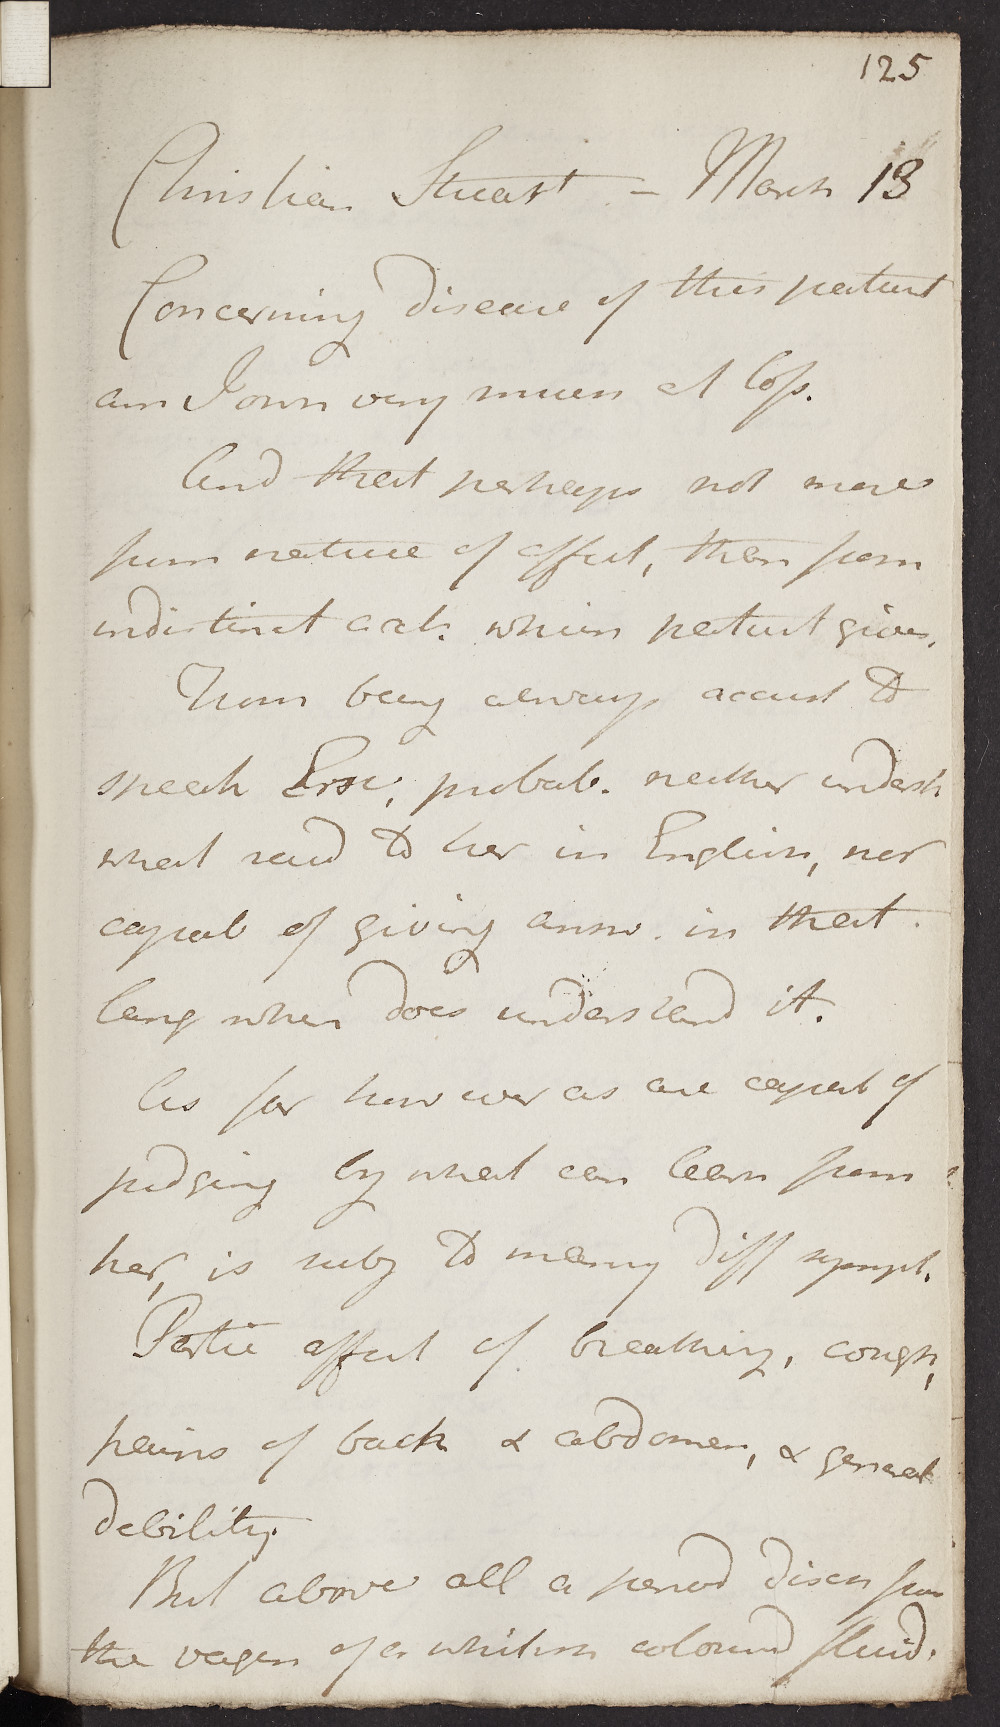 125
Christian Stuart - March 13
Concerning disease of this patient
am I own very much at loss.
And that perhaps not more
from nature of affect, than from
indistinct acct. which patient gives.
From being always accust to
speak Erse, probab. neither underst
what said to her in English, nor
capab of giving answ. in that
lang when does understand it.
As far however as are capab of
judging by what can learn from
her, is subj to many diff sympt.
Partic affect of breathing, cough,
pains of back & abdomen, & general
debility.
But above all a period disch from
the vagin of a whitish coloured fluid.